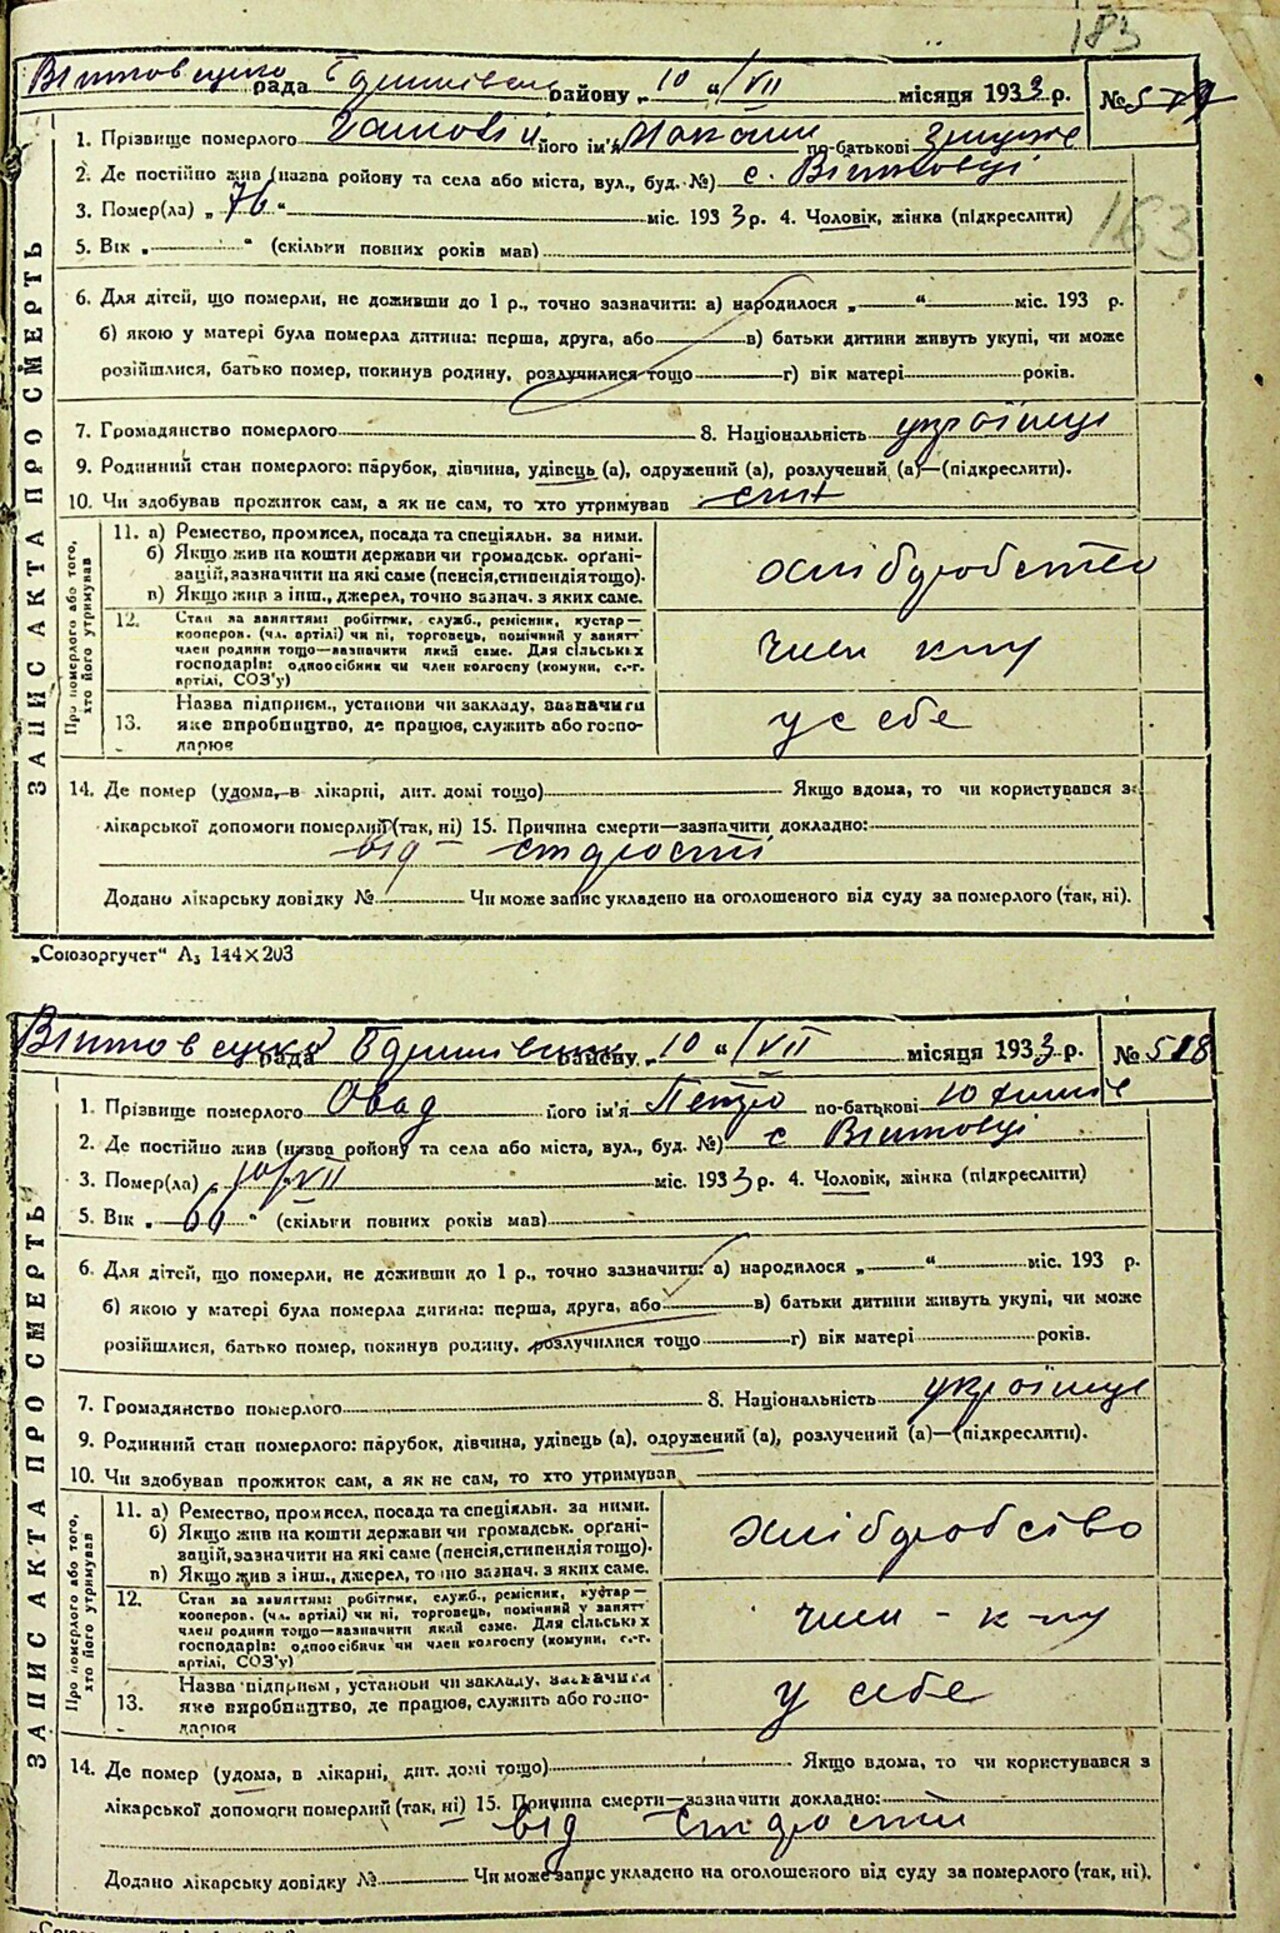 183
рада району „ 10 “ VII місяця 1933 р. №
1. Прізвище померлого його ім'я по-батькові
2. Де постійно жив (назва ройону та села або міста, вул., буд. №) с. Вітовці
3. Помер(ла) „ 76 “ міс. 193 3 р. 4. Чоловік, жінка (підкреслити)
163
5. Вік „ “ (скільки повних років мав)
6. Для дітей, що померли, не доживши до 1 р., точно зазначити: а) народилося „ “ міс. 193 р.
б) якою у матері була померла дитина: перша, друга, або в) батьки дитини живуть укупі, чи може
розійшлися, батько помер, покинув родину, розлучилися тощо г) вік матері років.
7. Громадянство померлого 8. Національність українці
9. Родинний стан померлого: парубок, дівчина, удівець (а), одружений (а), розлучений (а)—(підкреслити).
10. Чи здобував прожиток сам, а як не сам, то хто утримував
ЗАПИС АКТА ПРО СМЕРТЬ
Про померлого або того, хто його утримував
11. а) Ремество, промисел, посада та спеціяльн. за ними.
б) Якщо жив на кошти держави чи громадськ. орґані-
зацій, зазначити на які саме (пенсія, стипендія тощо).
в) Якщо жив з інш., джерел, точно зазнач. з яких саме.
хлібдробство
12. Стан за заняттям: робітник, служб., ремісник, кустар—
кооперов. (чл. артілі) чи ні, торговець, помічний у занятт
член родини тощо—зазначити який саме. Для сільських
господарів: одноосібник чи член колгоспу (комуни, с.-г.
артілі, СОЗ'у)
член к-пу
13. Назва підприєм., установи чи закладу, зазначити
яке виробництво, де працює, служить або госпо-
дарює
у себе
14. Де помер (удома, в лікарні, дит. домі тощо) Якщо вдома, то чи користувався з
лікарської допомоги померлий (так, ні) 15. Причина смерти—зазначити докладно:
від старости
Додано лікарську довідку № Чи може запис укладено на оголошеного від суду за померлого (так, ні).
„Союзоргучет“ А₃ 144×203
рада району „ 10 “ VII місяця 1933 р. № 518
1. Прізвище померлого Овад його ім'я Петро по-батькові
2. Де постійно жив (назва району та села або міста, вул., буд. №) с Вітовці
3. Помер(ла) „ 10/VII міс. 193 3 р. 4. Чоловік, жінка (підкреслити)
5. Вік „ “ (скільки повних років мав)
6. Для дітей, що померли, не доживши до 1 р., точно зазначити: а) народилося „ “ міс. 193 р.
б) якою у матері була померла дитина: перша, друга, або в) батьки дитини живуть укупі, чи може
розійшлися, батько помер, покинув родину, розлучилися тощо г) вік матері років.
7. Громадянство померлого 8. Національність українці
9. Родинний стан померлого: парубок, дівчина, удівець (а), одружений (а), розлучений (а)—(підкреслити).
10. Чи здобував прожиток сам, а як не сам, то хто утримував
ЗАПИС АКТА ПРО СМЕРТЬ
Про померлого або того, хто його утримував
11. а) Ремество, промисел, посада та спеціяльн. за ними.
б) Якщо жив на кошти держави чи громадськ. орґані-
зацій, зазначити на які саме (пенсія, стипендія тощо).
в) Якщо жив з інш., джерел, то но зазнач. з яких саме.
хлібдробство
12. Стан за заняттям: робітник, служб., ремісник, кустар—
кооперов. (чл. артілі) чи ні, торговець, помічний у занятт
член родини тощо—зазначити який саме. Для сільських
господарів: одноосібник чи член колгоспу (комуни, с.-г.
артілі, СОЗ'у)
член - к-пу
13. Назва підприєм, установи чи закладу, зазначити
яке виробництво, де працює, служить або госпо-
дарює
у себе
14. Де помер (удома, в лікарні, дит. домі тощо) Якщо вдома, то чи користувався з
лікарської допомоги померлий (так, ні) 15. Причина смерти—зазначити докладно:
від старости
Додано лікарську довідку № Чи може запис укладено на оголошеного від суду за померлого (так, ні).